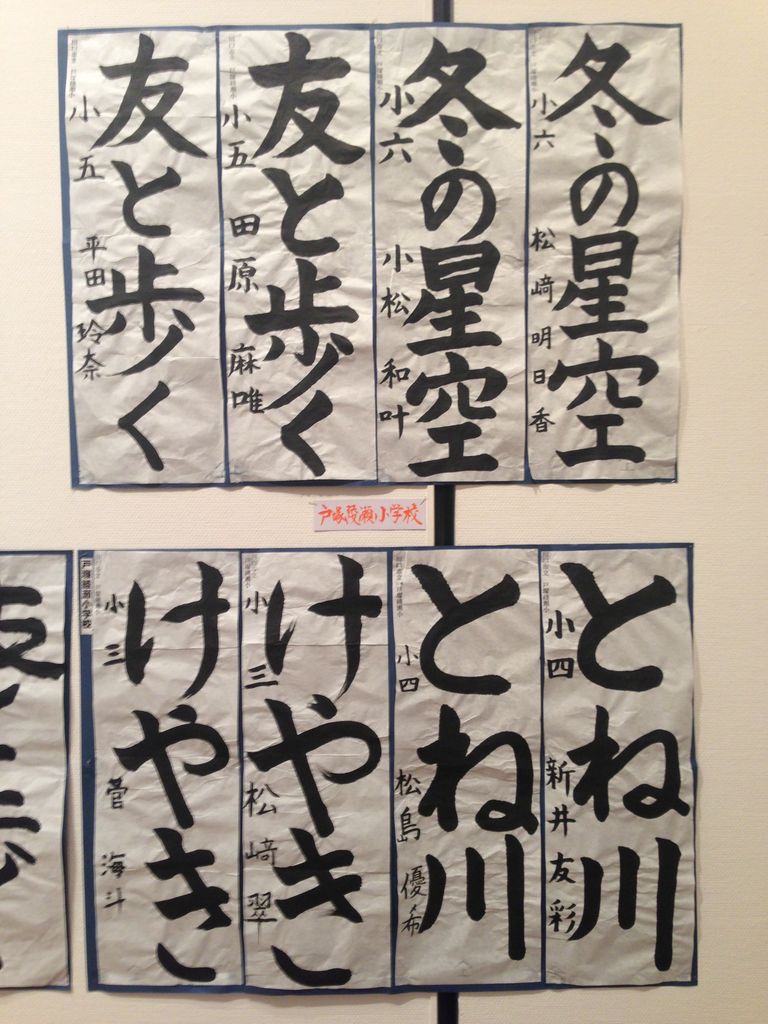 冬の星空
小六 松﨑明日香
冬の星空
小六 小松和叶
友と歩く
小五 田原麻唯
友と歩く
小五 平田玲奈
戸塚綾瀬小学校
とね川
小四 新井友彩
とね川
小四 松島優希
けやき
小三 松﨑翠
けやき
小三 菅海斗
戸塚綾瀬小学校